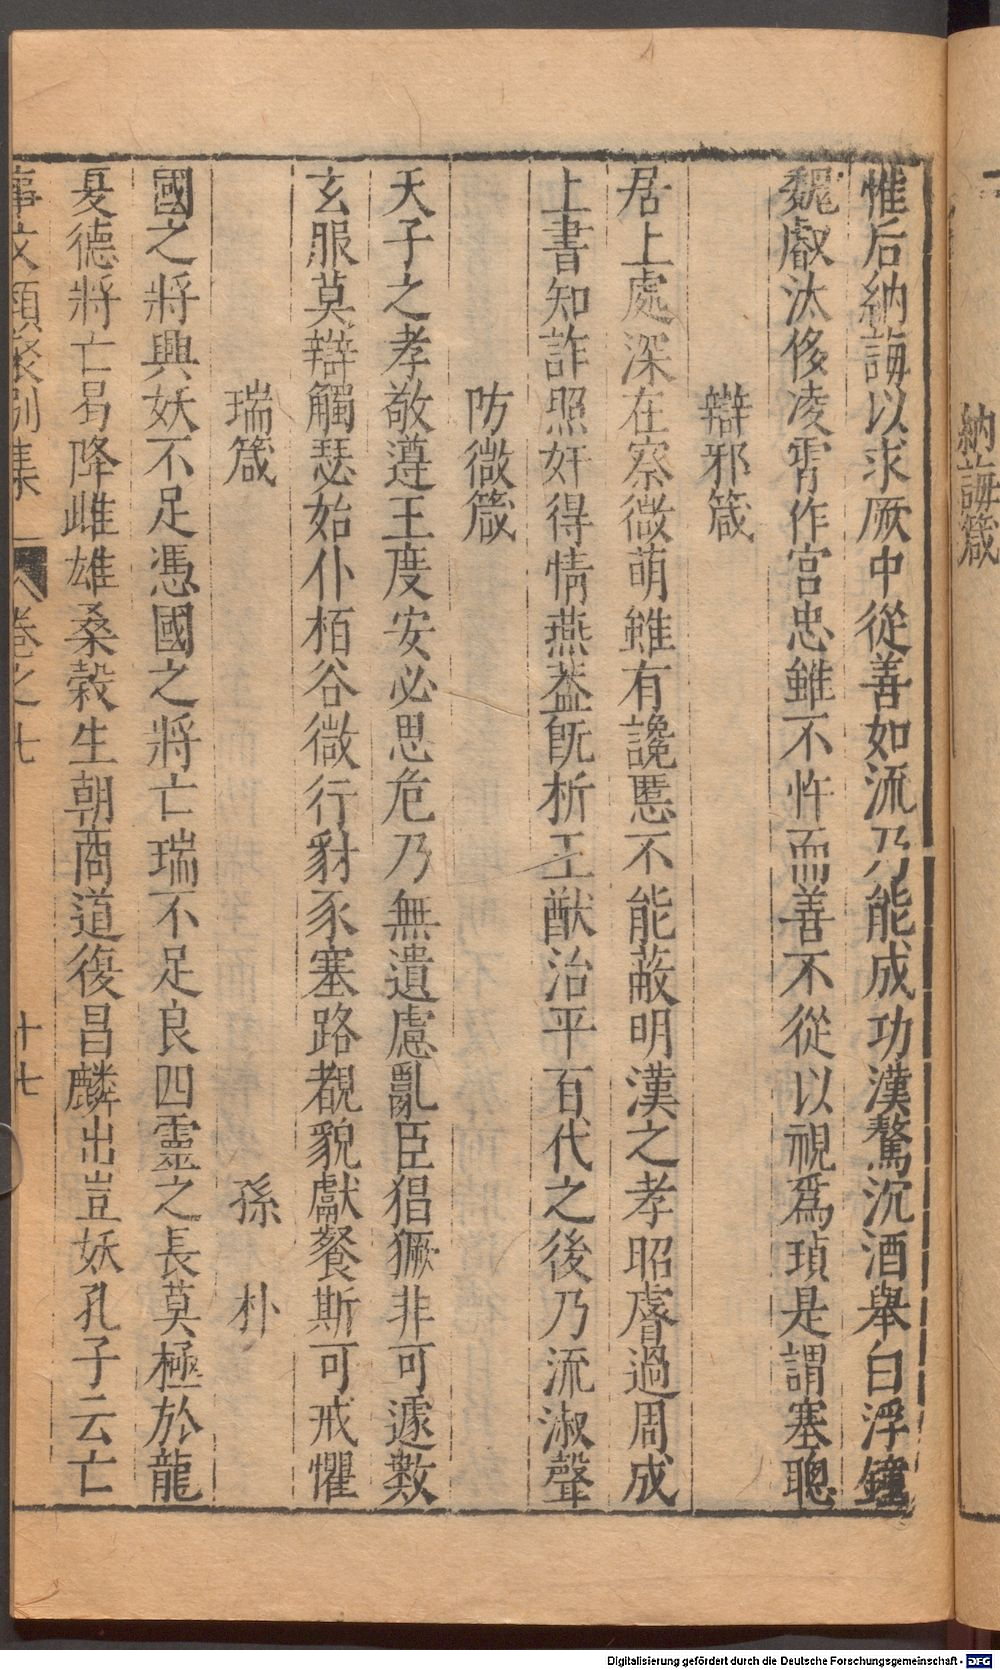 納誨箴
惟后納誨以求厥中從善如流乃能成功漢驁沉酒舉白浮鐘
魏叡汰侈凌霄作宮忠雖不忤而善不從以視爲瑱是謂塞聰
辯邪箴
居上處深在察微萌雖有讒慝不能蔽明漢之孝昭睿過周成
上書知詐照奸得情燕蓋旣析王猷治平百代之後乃流淑聲
防微箴
天子之孝敬遵王度安必思危乃無遺慮亂臣猖獗非可遽數
玄服莫辯觸瑟始仆栢谷微行豺豕塞路覩貌獻餐斯可戒懼
瑞箴 孫朴
國之將興妖不足憑國之將亡瑞不足良四靈之長莫極於龍
夏德將亡曷降雌雄桑榖生朝商道復昌麟出豈妖孔子云亡
事文類聚別集 卷之七 十七
Digitalisierung gefördert durch die Deutsche Forschungsgemeinschaft - DFG